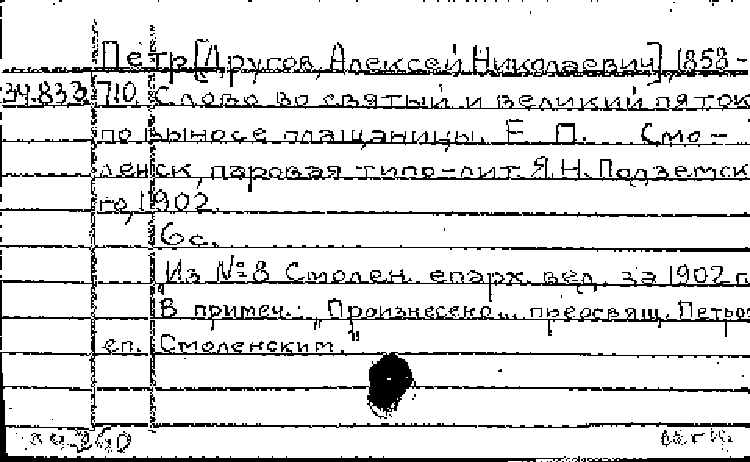 Петр [Другов, Алексей Николаевич], 1858-
34.833.710 Слово во святый и великий пяток
по выносе плащаницы. Е. П. Смо-
ленск, паровая типо-лит. Я.Н. Подземск
го, 1902.
6 с.
Из № 8 Смолен. епарх. вед. за 1902 г.
В примеч.: "Произнесено... преосвящ. Петро
еп. Смоленским."